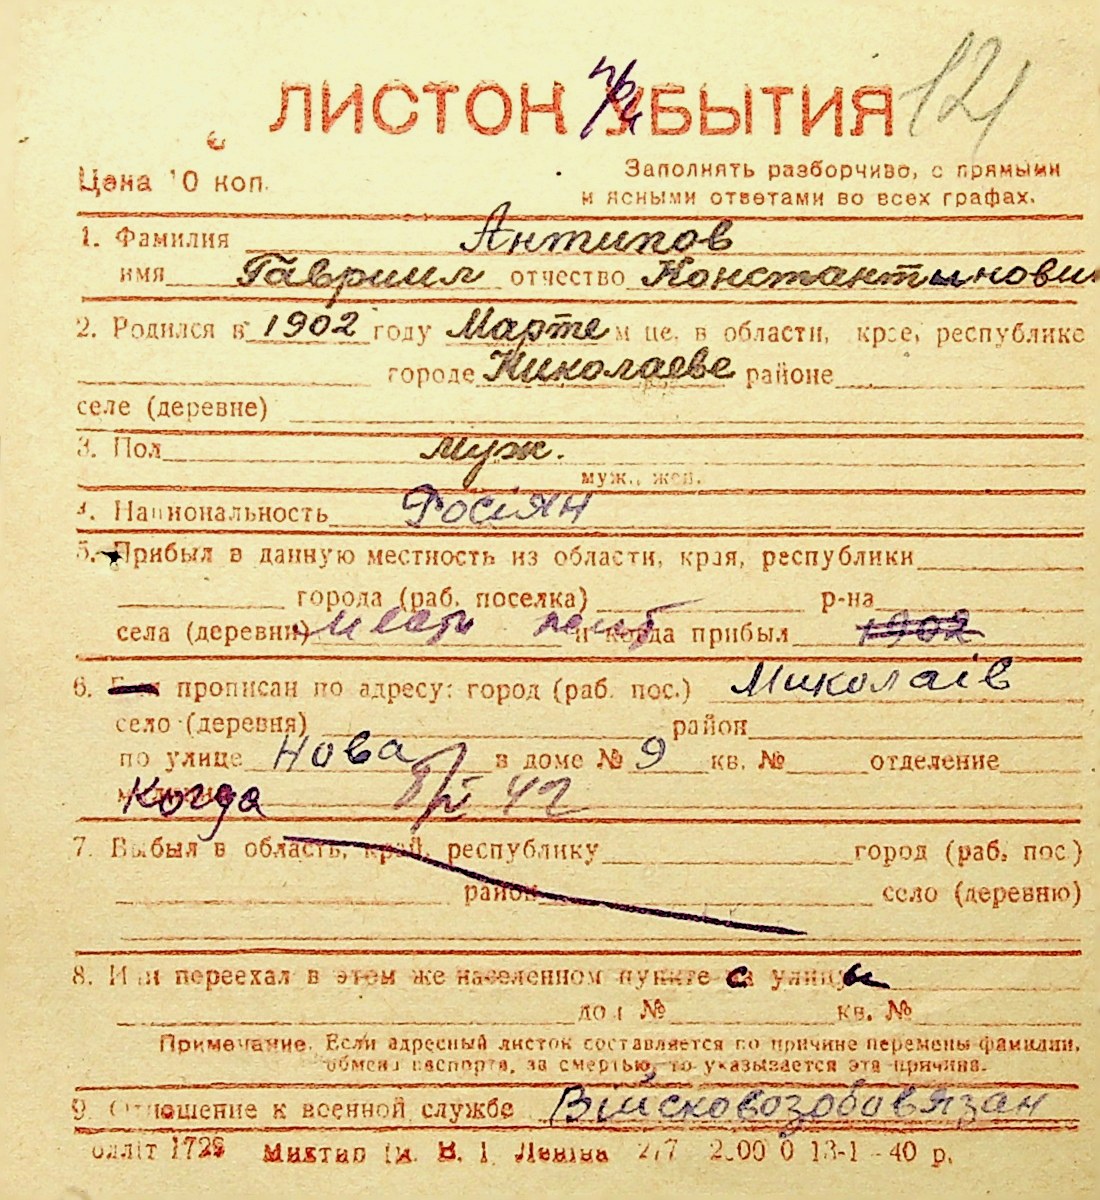 ЛИСТОК УБЫТИЯ 121
Цена 10 коп.
Заполнять разборчиво, с прямыми
и ясными ответами во всех графах.
1. Фамилия Антипов
имя Гавриил отчество Константынович
2. Родился в 1902 году Марте м це, в области, крае, республике
городе Николаеве районе
селе (деревне)
3. Пол муж.
муж., жен.
4. Национальность Росіян
5. Прибыл в данную местность из области, края, республики
города (раб. поселка) р-на
села (деревни) и когда прибыл 1902
6. прописан по адресу: город (раб. пос.) Миколаїв
село (деревня) район
по улице Нова в доме № 9 кв. № отделение
Когда 42
7. Выбыл в область, край, республику город (раб. пос.)
район село (деревню)
8. Или переехал в этом же населенном пункте с улицы
дом № кв. №
Примечание. Если адресный листок составляется по причине перемены фамилии,
обмена паспорта, за смертью, то указывается эта причина.
9. Отношение к военной службе Військовозобовязан
Оллiт 1728 Миктип ім. В. І. Леніна 2.00 0 13-1-40 р.